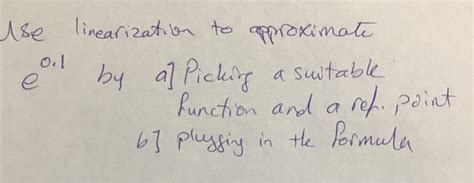 Use linearization to approximate
e^0.1 by a] Picking a suitable
function and a ref. point
b] plugging in the formula